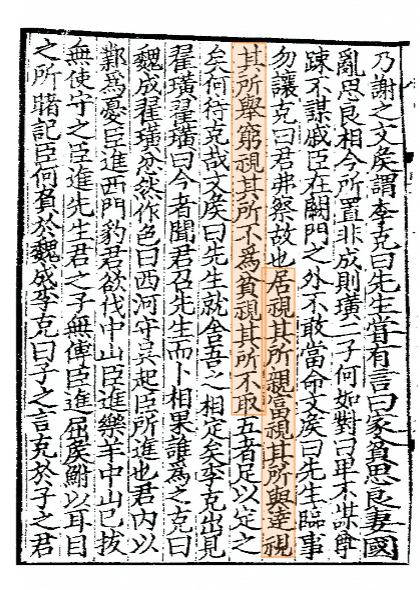 乃謝之文矦謂李克曰先生嘗有言曰家貧思良妻國
亂思良相今所置非成則璜二子何如對曰卑不謀尊
踈不謀戚臣在闕門之外不敢當命文矦曰先生臨事
勿讓克曰君弗察故也居視其所親富視其所與逹視
其所舉窮視其所不為貧視其所不取五者足以定之
矣何待克哉文矦曰先生就舍吾之相定矣李克出見
翟璜翟璜曰今者聞君召先生而卜相果誰為之克曰
魏成翟璜忿然作色曰西河守吳起臣所進也君内以
鄴為憂臣進西門豹君欲伐中山臣進樂羊中山已拔
無使守之臣進先生君之子無傅臣進屈矦鮒以耳目
之所睹記臣何負於魏成李克曰子之言克於子之君